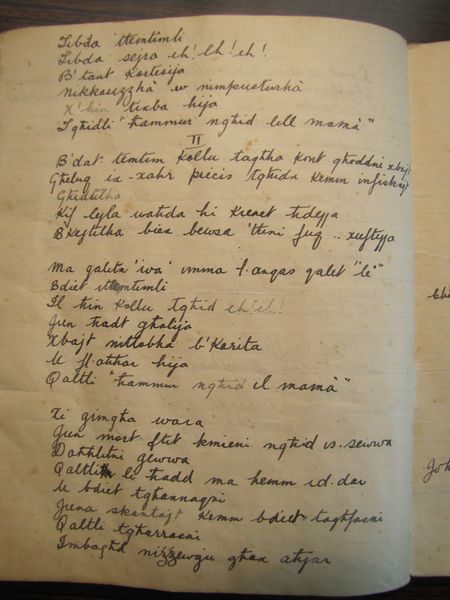 Tibda ttemtimli
Tibda sejra eh! Eh! eh!
B'tant kortesija
nikkonzzha w nimpustusha
X'hin tixba hija
Tghidli "ħammur nghid lell mamà"
II
B'dat temtim kollu tagħha kont għoddni xbajt
Għeluq ix-xahr precis tgħidu kemm infishajt
Għidtilha
Kif lejla waħida hi kienet ħdejja
B'kejlitha biex bewsa ttini fuq .. xuftejja
Ma qaletx 'iva' umma l.anqas qalet "le"
Bdiet ittemtimli
Il ħin kollu tgħid eh! eh!
Jien ħadt għalija
Xbajt nitlobha b'karità
U fl.aħħar hija
Qaltli "ħammur ngħid il mamà"
Xi gimgħa wara
Jien mort ftit kmieni ngħid is.sewwa
Daħħlitni gewwa
Qaltli li ħadd ma hemm id.dar
U bdiet tgħannaqni
Jiena skantajt kemm bdiet tagħfasni
Qaltli tgħarrasni
Imbagħd nizzewgu għax aħjar